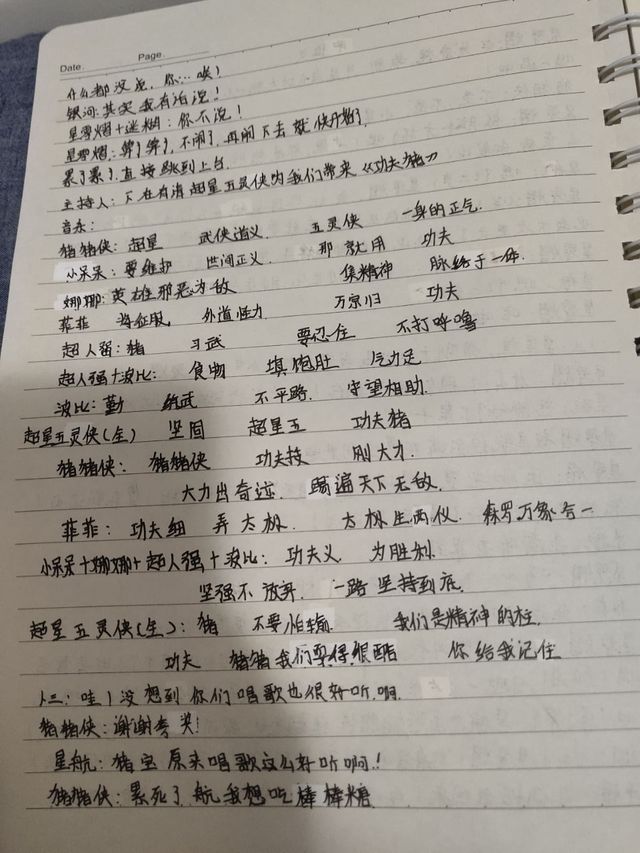 Date. Page.
什么都没说，你…唉！
银河：其实我有话说！
星零熠+迷糊：你不说！
星零熠：算了算了，不闹了，再闹下去就快开始了
累了累了，直接跳到上台
主持人：下在有请超星五灵侠为我们带来《功夫猪》
音乐：
猪猪侠：超星 武侠道义 五灵侠 一身的正气
小呆呆：要维护 世间正义 那就用 功夫
娜娜：英雄邪恶为敌 集精神 脉络于一体
菲菲 将征服 外道怪力 万宗归 功夫
超人强：猪 习武 要忍住 不打呼噜
超人强+波比：食物 填饱肚 气力足
波比：勤 练武 不平路 守望相助
超星五灵侠(全) 坚固 超星五 功夫猪
猪猪侠：猪猪侠 功夫技 刚大力
大力出奇迹 踢遍天下无敌
菲菲：功夫细 弄太极 太极生两仪 森罗万象合一
小呆呆+娜娜+超人强+波比：功夫义 为胜利
坚强不放弃 一路坚持到底
超星五灵侠(全)：猪 不要怕输 我们是精神的柱
功夫 猪猪我们耍得很酷 你给我记住
人三：哇！没想到你们唱歌也很好听啊
猪猪侠：谢谢夸奖！
星航：猪宝原来唱歌这么好听啊！
猪猪侠：累死了 航我想吃棒棒糖